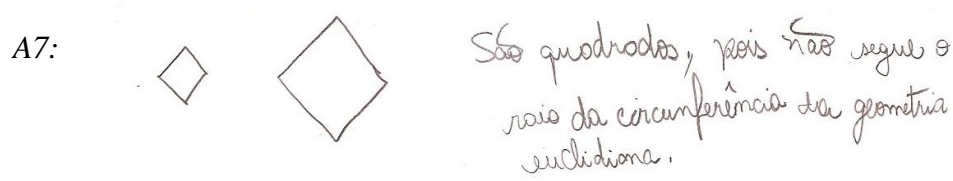 A7:
São quadrados, pois não segue o
raio da circunferência da geometria
euclidiana.